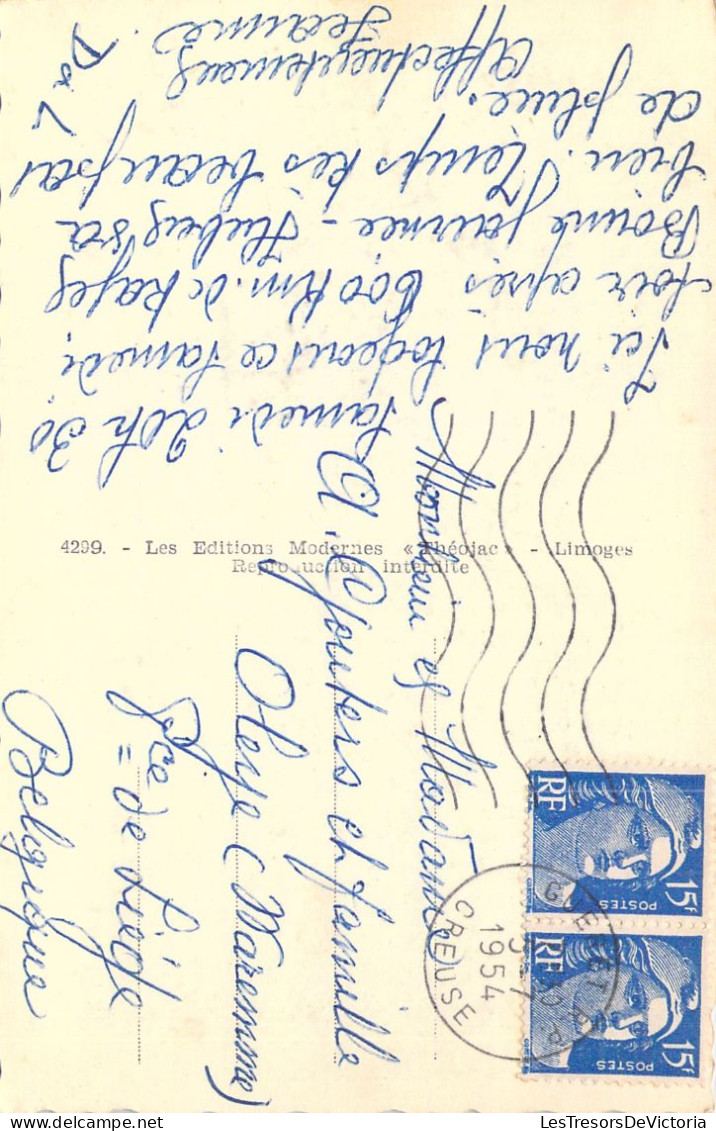 Samedi 20h 30
Ici nous logeons ce samedi
soir après 600 Km. de
Bonne journée - Hubert va
bien. Temps très beau pas
de pluie.
Affectueusement
Jeanne
4299. - Les Editions Modernes « Théojac » - Limoges
Reproduction interdite
Monsieur et Madame
et famille
Oleye (Waremme)
Pce de Liége
Belgique
RF
POSTES
15F
RF
POSTES
15F
GUERET R.P.
1954
CREUSE
LesTresorsDeVictoria
delcampe.net